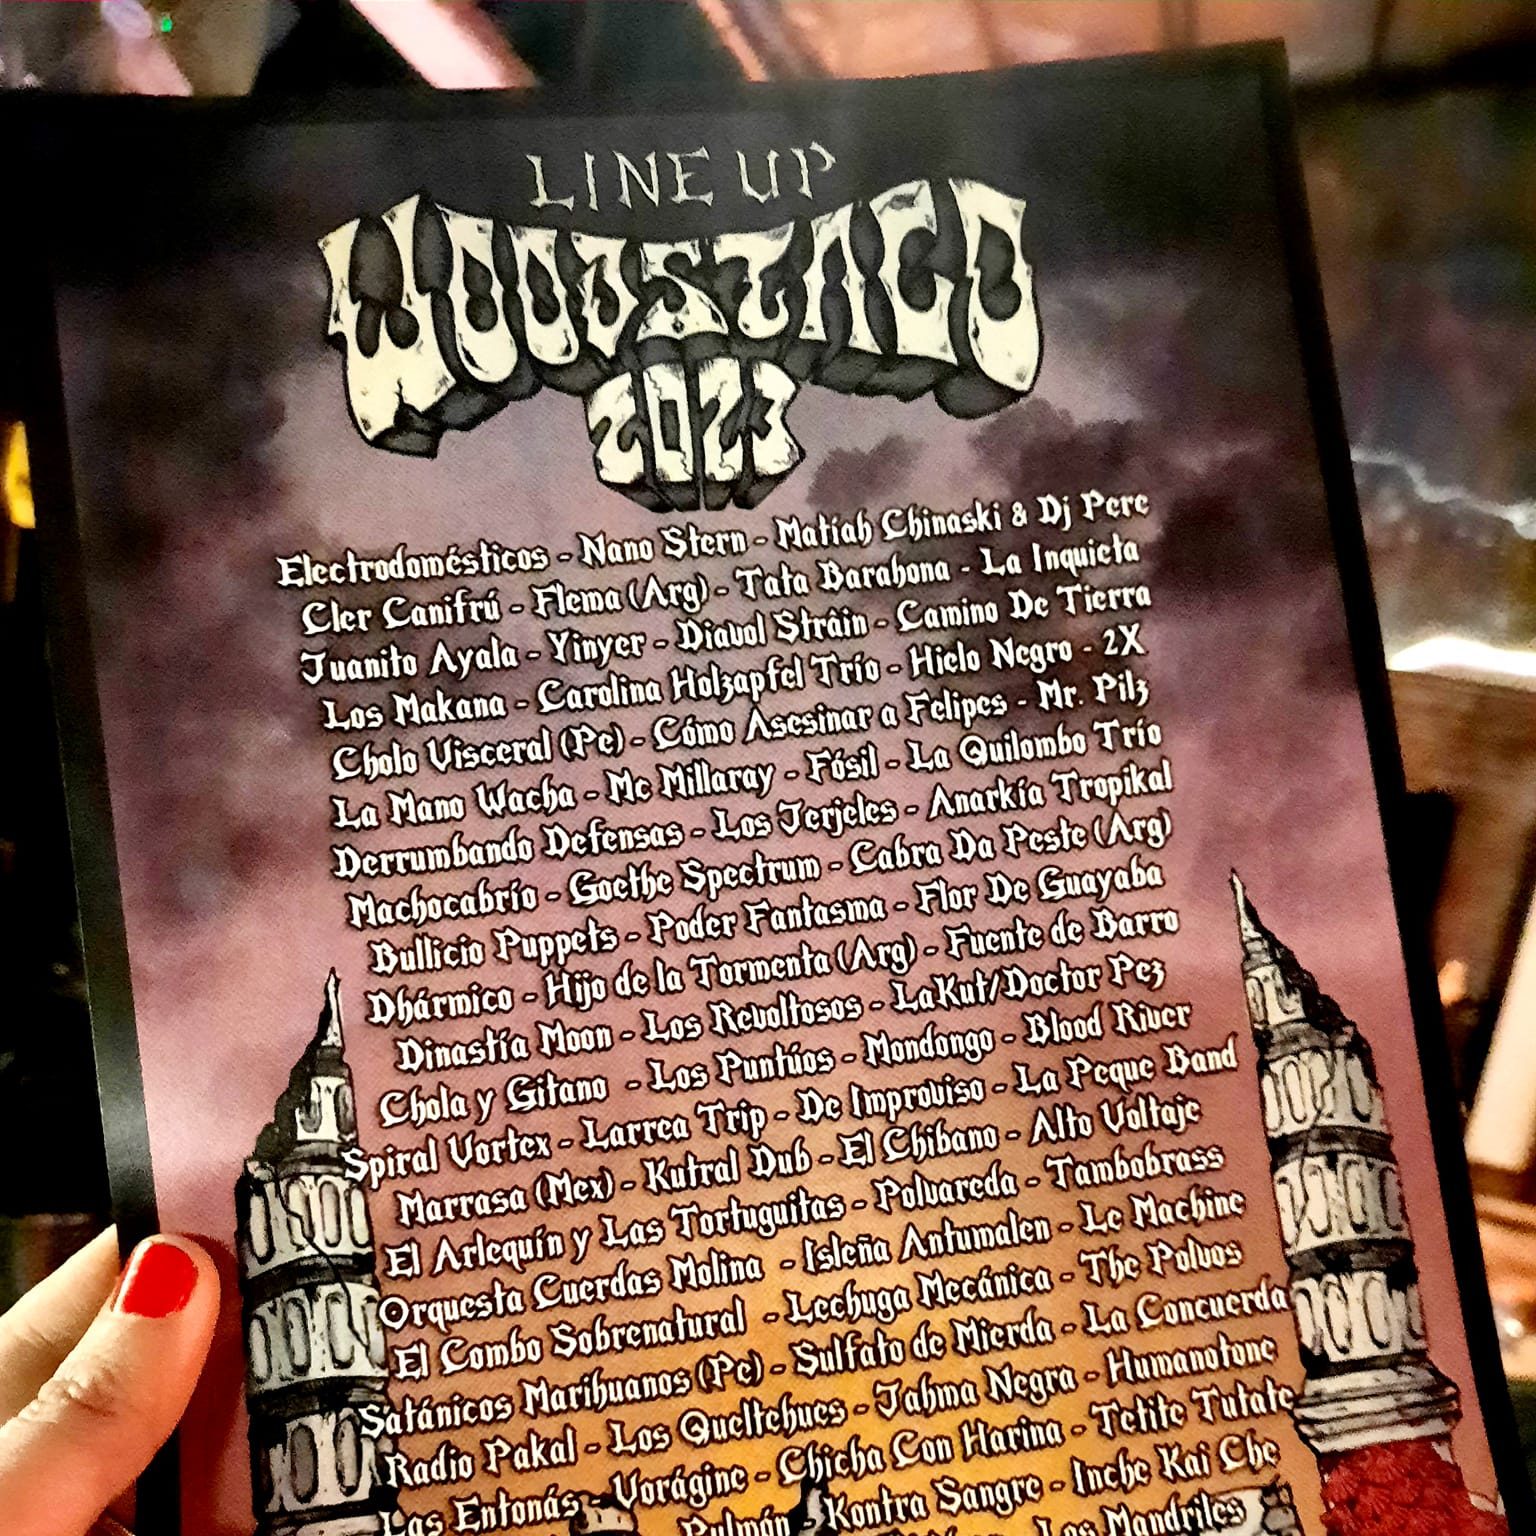 LINE UP
WOODSTACO
2023
Electrodomésticos - Nano Stern - Matiah Chinaski & Dj Pere
Cler Canifrú - Flema (Arg) - Tata Barahona - La Inquieta
Juanito Ayala - Yinyer - Diavol Strâin - Camino De Tierra
Los Makana - Carolina Holzapfel Trío - Hielo Negro - 2X
Cholo Visceral (Pe) - Cómo Asesinar a Felipes - Mr. Pilz
La Mano Wacha - Mc Millaray - Fósil - La Quilombo Trío
Derrumbando Defensas - Los Jerjeles - Anarkía Tropikal
Machocabrío - Goethe Spectrum - Cabra Da Peste (Arg)
Bullicio Puppets - Poder Fantasma - Flor De Guayaba
Dhármico - Hijo de la Tormenta (Arg) - Fuente de Barro
Dinastía Moon - Los Revoltosos - LaKut/Doctor Pez
Chola y Gitano - Los Puntúos - Mondongo - Blood River
Spiral Vortex - Larrea Trip - De Improviso - La Peque Band
Marrasa (Mex) - Kutral Dub - El Chibano - Alto Voltaje
El Arlequín y Las Tortuguitas - Polvareda - Tambobrass
Orquesta Cuerdas Molina - Isleña Antumalen - Le Machine
El Combo Sobrenatural - Lechuga Mecánica - The Polvos
Satánicos Marihuanos (Pe) - Sulfato de Mierda - La Concuerda
Radio Pakal - Los Queltehues - Jahma Negra - Humanotone
Las Entonás - Vorágine - Chicha Con Harina - Tetite Tutate
Pulmón - Kontra Sangre - Inche Kai Che
Los Mandriles